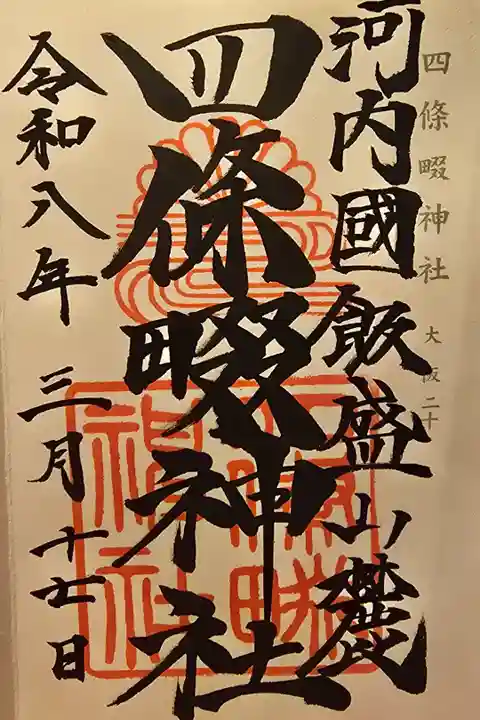 四條畷神社 大阪二十
河内國飯盛山麓
四條畷神社
令和八年 三月十七日
四條畷神社